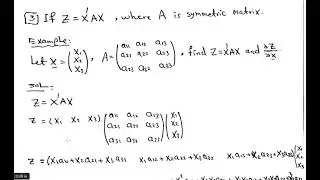 3 If Z = X'AX , where A is symmetric matrix.
Example:
Let X = (x1 x2 x3), A = (a11 a12 a13 a21 a22 a23 a31 a32 a33), find Z = X'AX and ∂Z/∂x .
Sol:
Z = X'AX
Z = (x1 x2 x3) (a11 a12 a13 a21 a22 a23 a31 a32 a33) (x1 x2 x3)
Z = (x1a11 + x2a21 + x3a31 x1a12 + x2a22 + x3a32 x1a13 + x2a23 + x3a33) (x1 x2